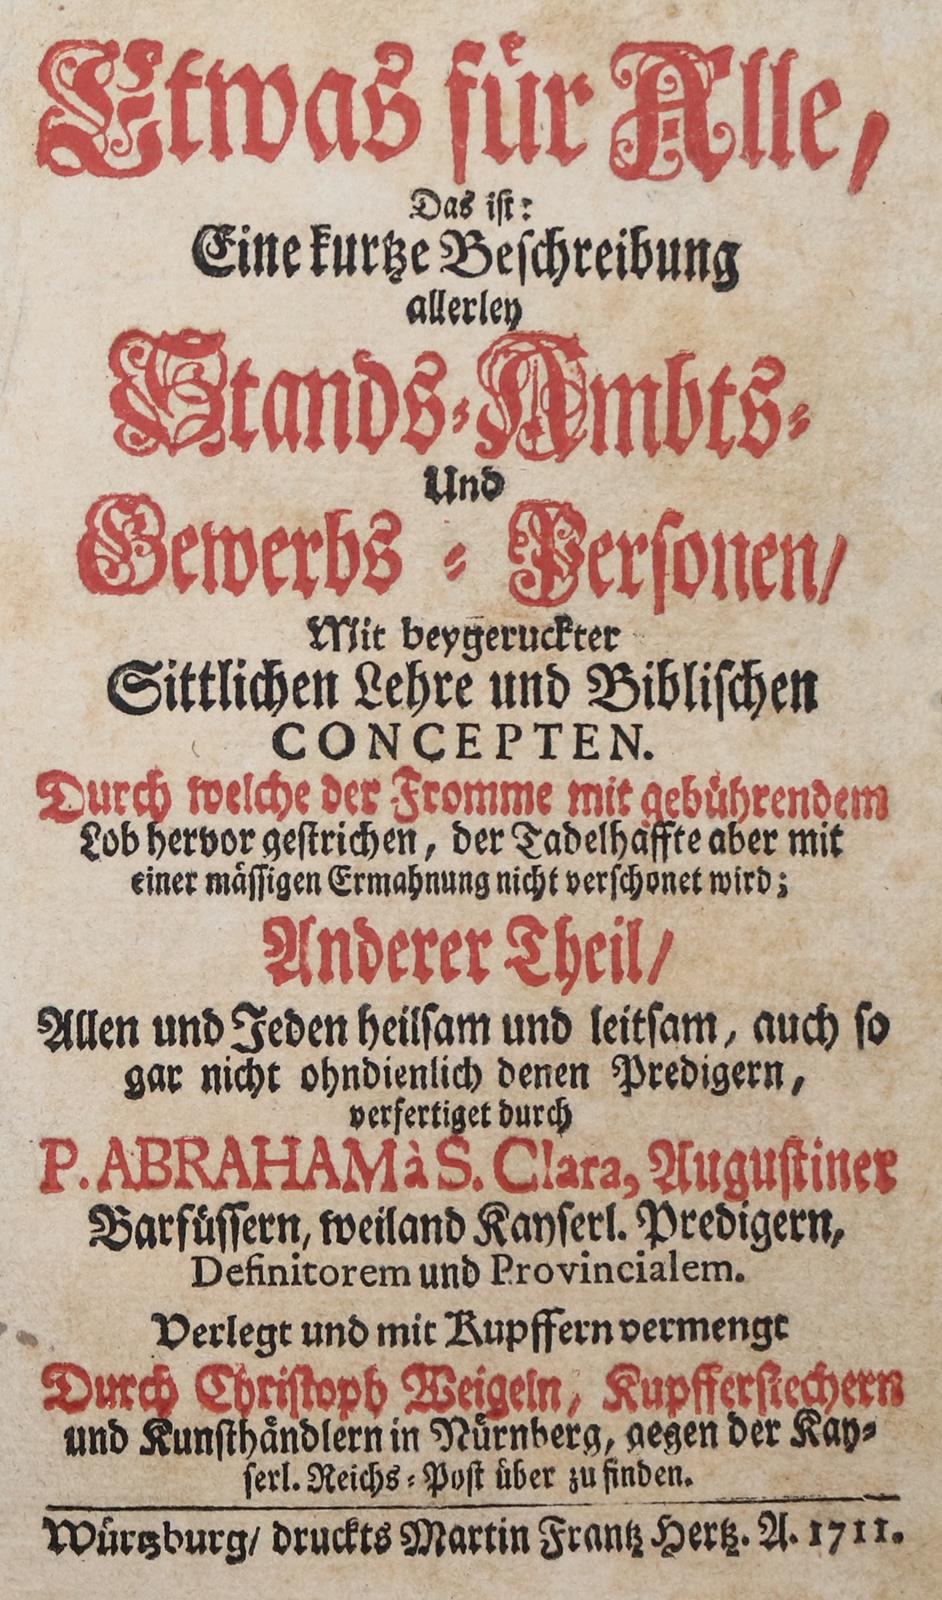 Etwas für Alle,
Das ist:
Eine kurtze Beschreibung
allerley
Stands-Ambts-
Und
Gewerbs-Personen/
Mit beygeruckter
Sittlichen Lehre und Biblischen
CONCEPTEN.
Durch welche der Fromme mit gebührendem
Lob hervor gestrichen, der Tadelhaffte aber mit
einer mässigen Ermahnung nicht verschonet wird;
Anderer Theil/
Allen und Jeden heilsam und leitsam, auch so
gar nicht ohndienlich denen Predigern,
verfertiget durch
P. ABRAHAM à S. Clara, Augustiner
Barfüssern, weiland Kayserl. Predigern,
Definitorem und Provincialem.
Verlegt und mit Kupffern vermengt
Durch Christoph Weigeln, Kupfferstechern
und Kunsthändlern in Nürnberg, gegen der Kay-
serl. Reichs-Post über zu finden.
Würtzburg/ druckts Martin Frantz Hertz. A. 1711.